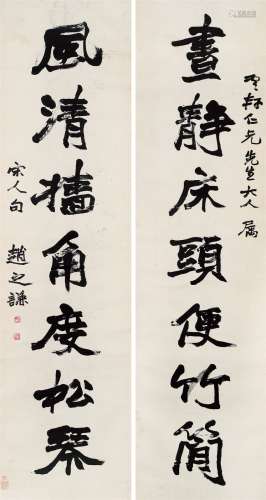 軒仁兄先生大人屬
晝靜床頭便竹簡
風清牆角度松琴
宋人句
趙之謙